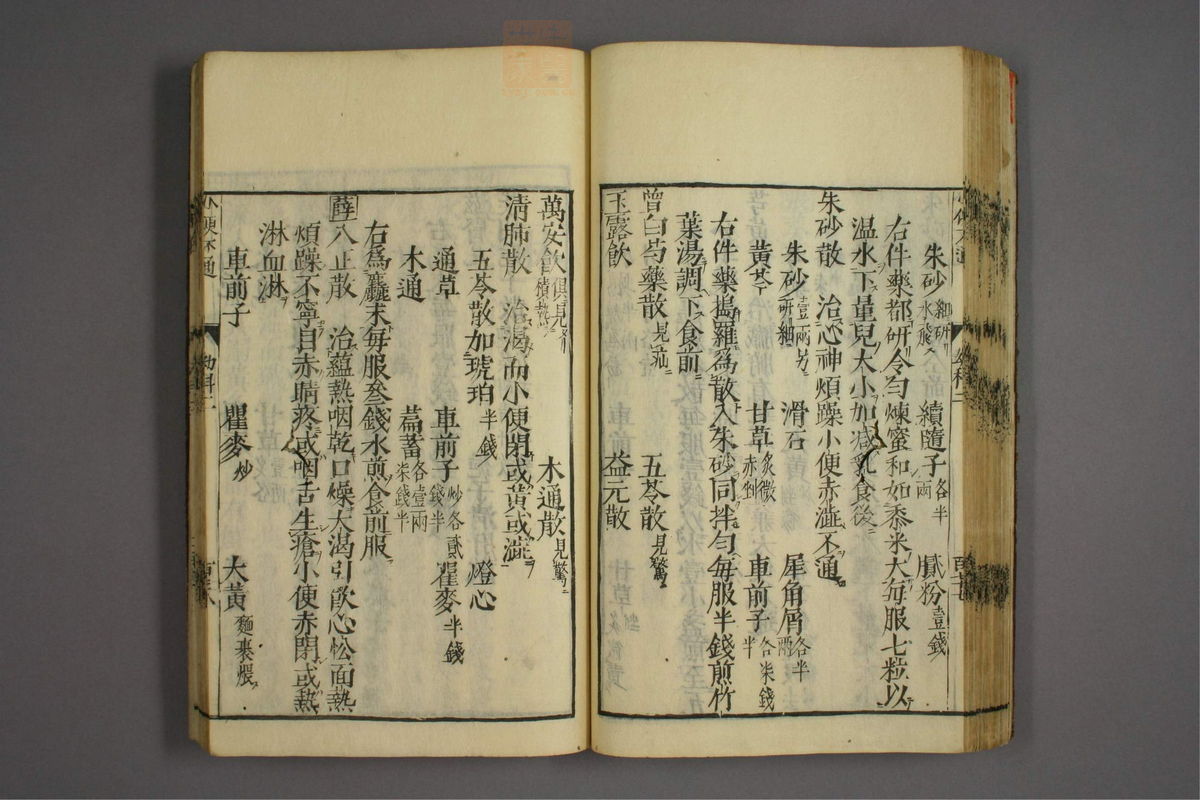 朱砂細研水飛 續隨子各半兩 膩粉壹錢
右件藥都研令勻煉蜜和如黍米大每服七粒以
溫水下量兒大小加減乳食後
朱砂散 治心神煩躁小便赤澁不通
朱砂壹兩另研細 滑石 犀角屑各半兩
黃芩 甘草炙微赤剉 車前子各柒錢半
右件藥搗羅爲散入朱砂同拌勻每服半錢煎竹
葉湯調下食前
曾白芍藥散見疝 五苓散見驚
玉露飲 益元散
萬安飲俱見積熱 木通散見驚
清肺散 治渴而小便閉或黃或澁
五苓散加琥珀半錢 燈心
通草 車前子炒各貳錢半 瞿麥半錢
木通 萹蓄各壹兩柒錢半
右爲麄末每服叁錢水煎食前服
薛八正散 治蘊熱咽乾口燥大渴引飲心忪面熱
煩躁不寧目赤睛疼或咽舌生瘡小便赤閉或熱
淋血淋
車前子 瞿麥炒 大黃麵裹煨
小便不通 幼科二